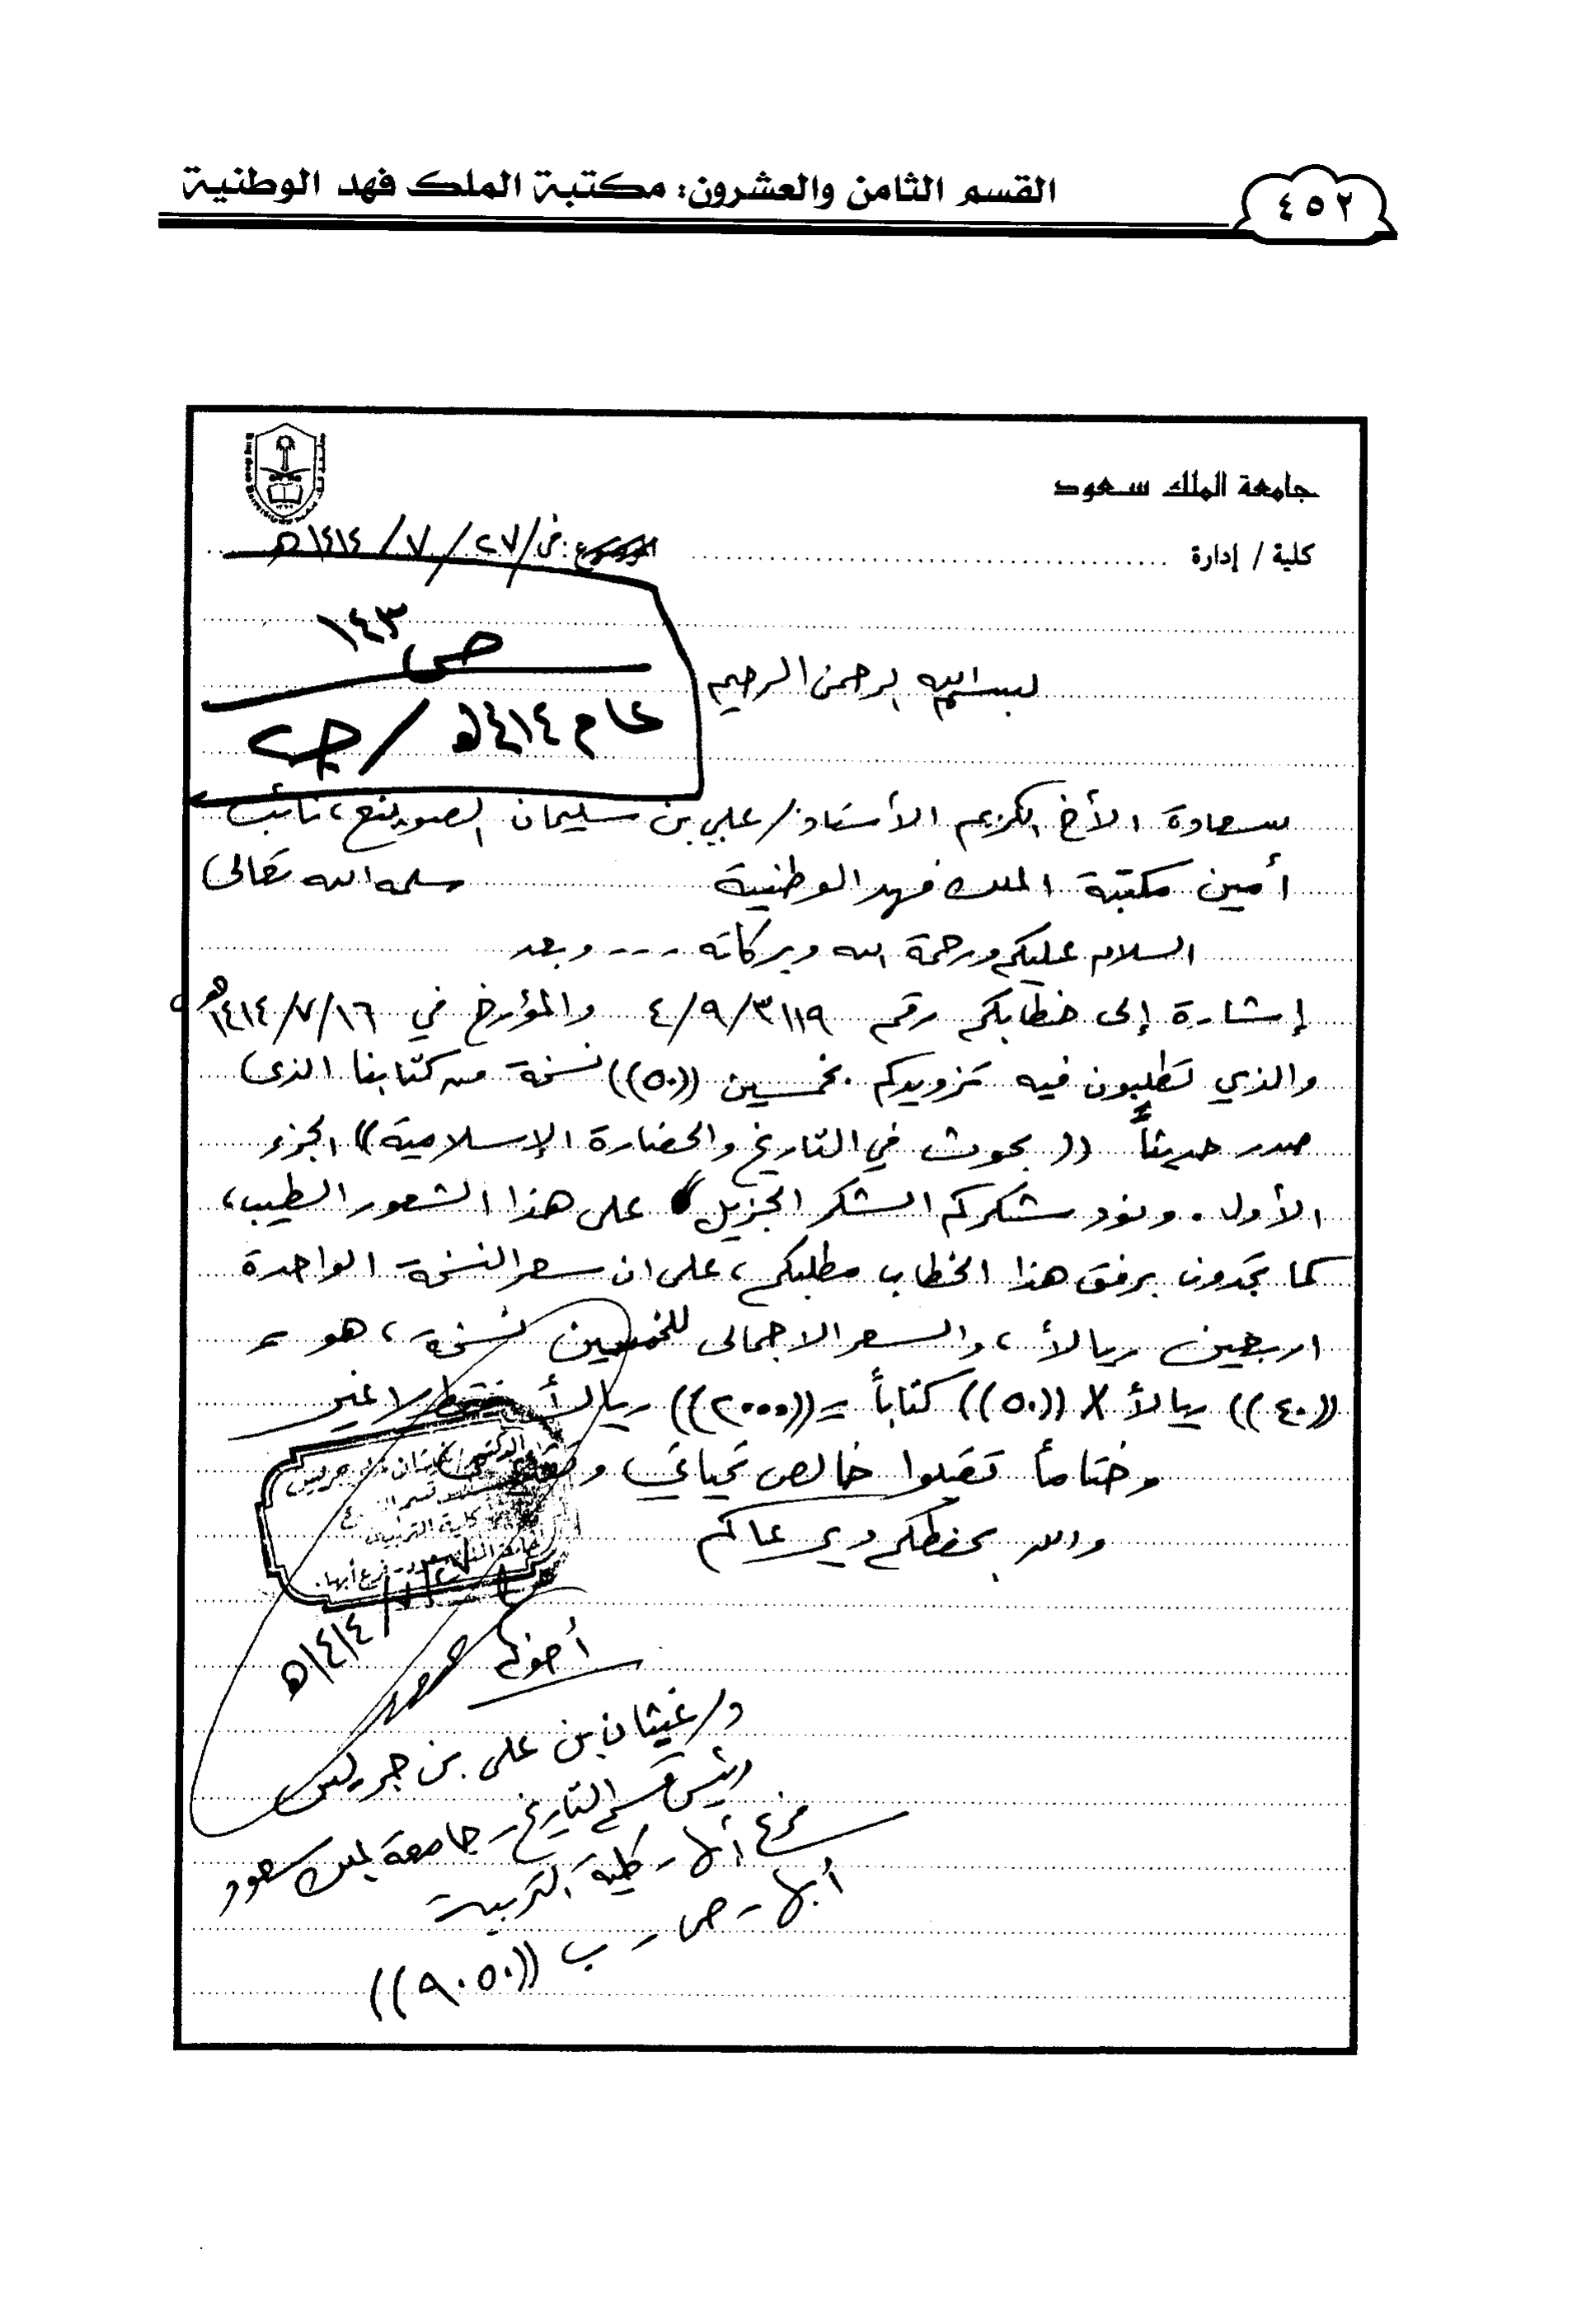 القسم الثامن والعشرون: مكتبة الملك فهد الوطنية
٤٥٢
جامعة الملك سعود
كلية / إدارة
في / ٢٧ / ٧ / ١٤١٤هـ
ص ١٤٣
عام ١٤١٤هـ / جـ٢
بسم الله الرحمن الرحيم
سعادة الأخ الكريم الأستاذ / علي بن سليمان الصوينع، نائب
أمين مكتبة الملك فهد الوطنية سلمه الله تعالى
السلام عليكم ورحمة الله وبركاته ---- وبعد
إشارة إلى خطابكم رقم ٤/٩/٣١١٩ والمؤرخ في ١٤١٤/٧/١٦هـ
والذي تطلبون فيه تزويدكم بخمسين ((٥٠)) نسخة من كتابنا الذى
صدر حديثاً ((بحوث في التاريخ والحضارة الإسلامية)) الجزء
الأول. ونود شكركم الشكر الجزيل على هذا الشعور الطيب،
كما تجدون برفق هذا الخطاب مطلبكم، على ان سعر النسخة الواحدة
اربعين ريالاً، والسعر الاجمالى للخمسين نسخة، هو =
((٤٠)) ريالاً X ((٥٠)) كتاباً = ((٢٠٠٠)) ريالاً فقط لا غير
وختاماً تقبلوا خالص تحياتي
والله يحفظكم ويرعاكم
الدكتور غيثان جريس
كلية التربية
فرع أبها.
١٤١٤هـ
أخوكم
د/ غيثان بن على بن جريس
رئيس قسم التاريخ - جامعة الملك سعود
فرع أبها - كلية التربية
أبها - ص - ب ((٩٠٥٠))